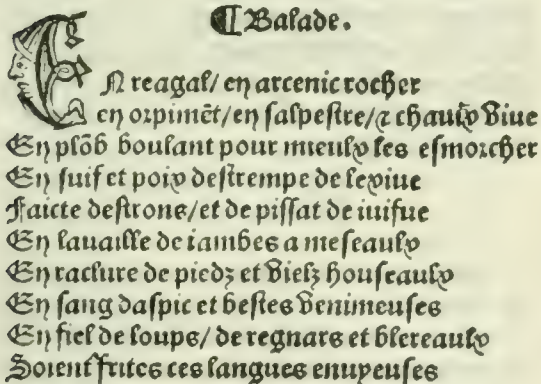 ¶ Balade.
EN reagal/ en arcenic rocher
en orpimēt/en salpestre/⁊ chaulx viue
En plōb boulant pour mieulx les esmorcher
En suif et poix destrempe de lexiue
Faicte destrons/et de pissat de iuifue
En lauaille de iambes a meseaulx
En raclure de piedz et vielz houseaulx
En sang daspic et bestes venimeuses
En fiel de loups/ de regnars et blereaulx
Soient frites ces langues enuyeuses